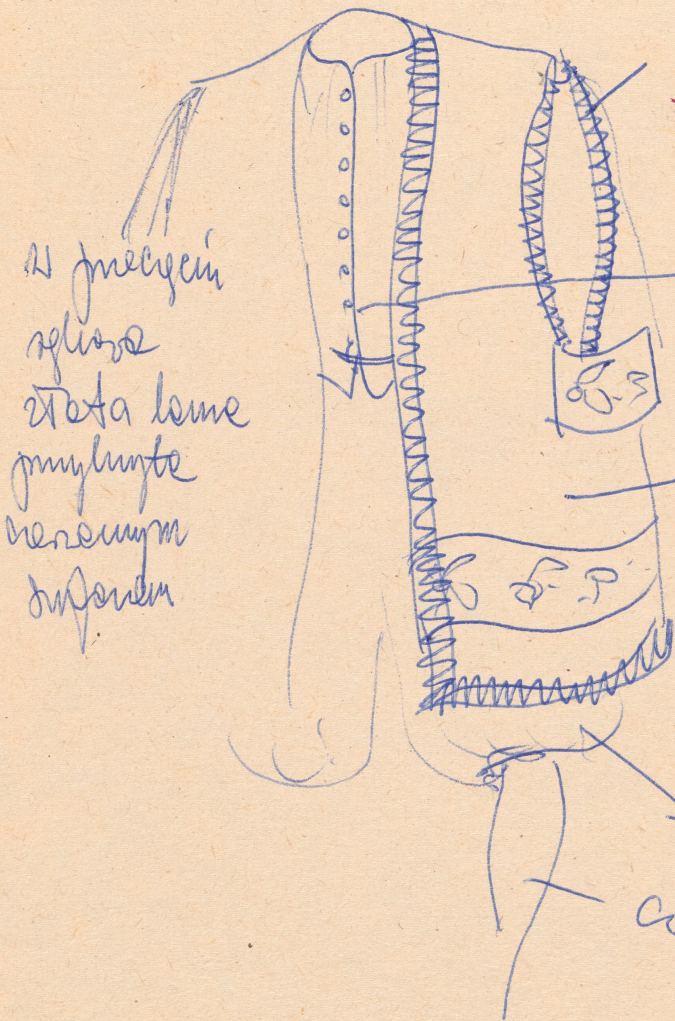 W przecięciu
rękawa
złota lama
przykryta
czarnym
szyfonem